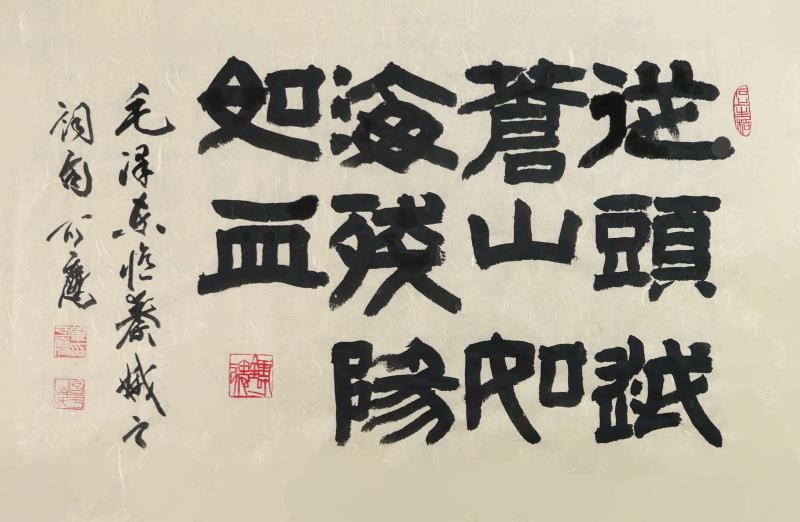 從頭越
蒼山如
海殘陽
如血
毛澤東憶秦娥之
詞句